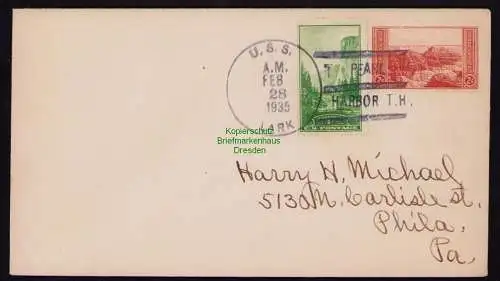 U.S.S.
A.M.
FEB
28
1935
LARK
PEARL
HARBOR T.H.
U.S. POSTAGE
Kopierschutz
Briefmarkenhaus
Dresden
Harry H. Michael
5130 N. Carlisle st.
Phila.
Pa.